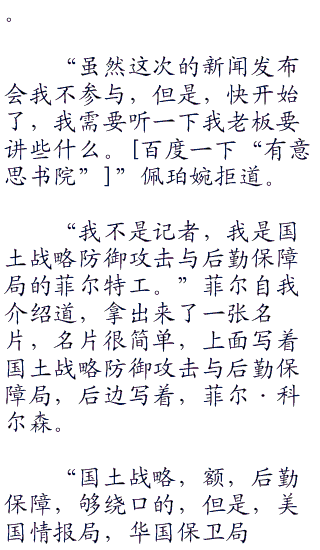 。
“虽然这次的新闻发布
会我不参与，但是，快开始
了，我需要听一下我老板要
讲些什么。[百度一下“有意
思书院”]”佩珀婉拒道。
“我不是记者，我是国
土战略防御攻击与后勤保障
局的菲尔特工。”菲尔自我
介绍道，拿出来了一张名
片，名片很简单，上面写着
国土战略防御攻击与后勤保
障局，后边写着，菲尔·科
尔森。
“国土战略，额，后勤
保障，够绕口的，但是，美
国情报局，华国保卫局